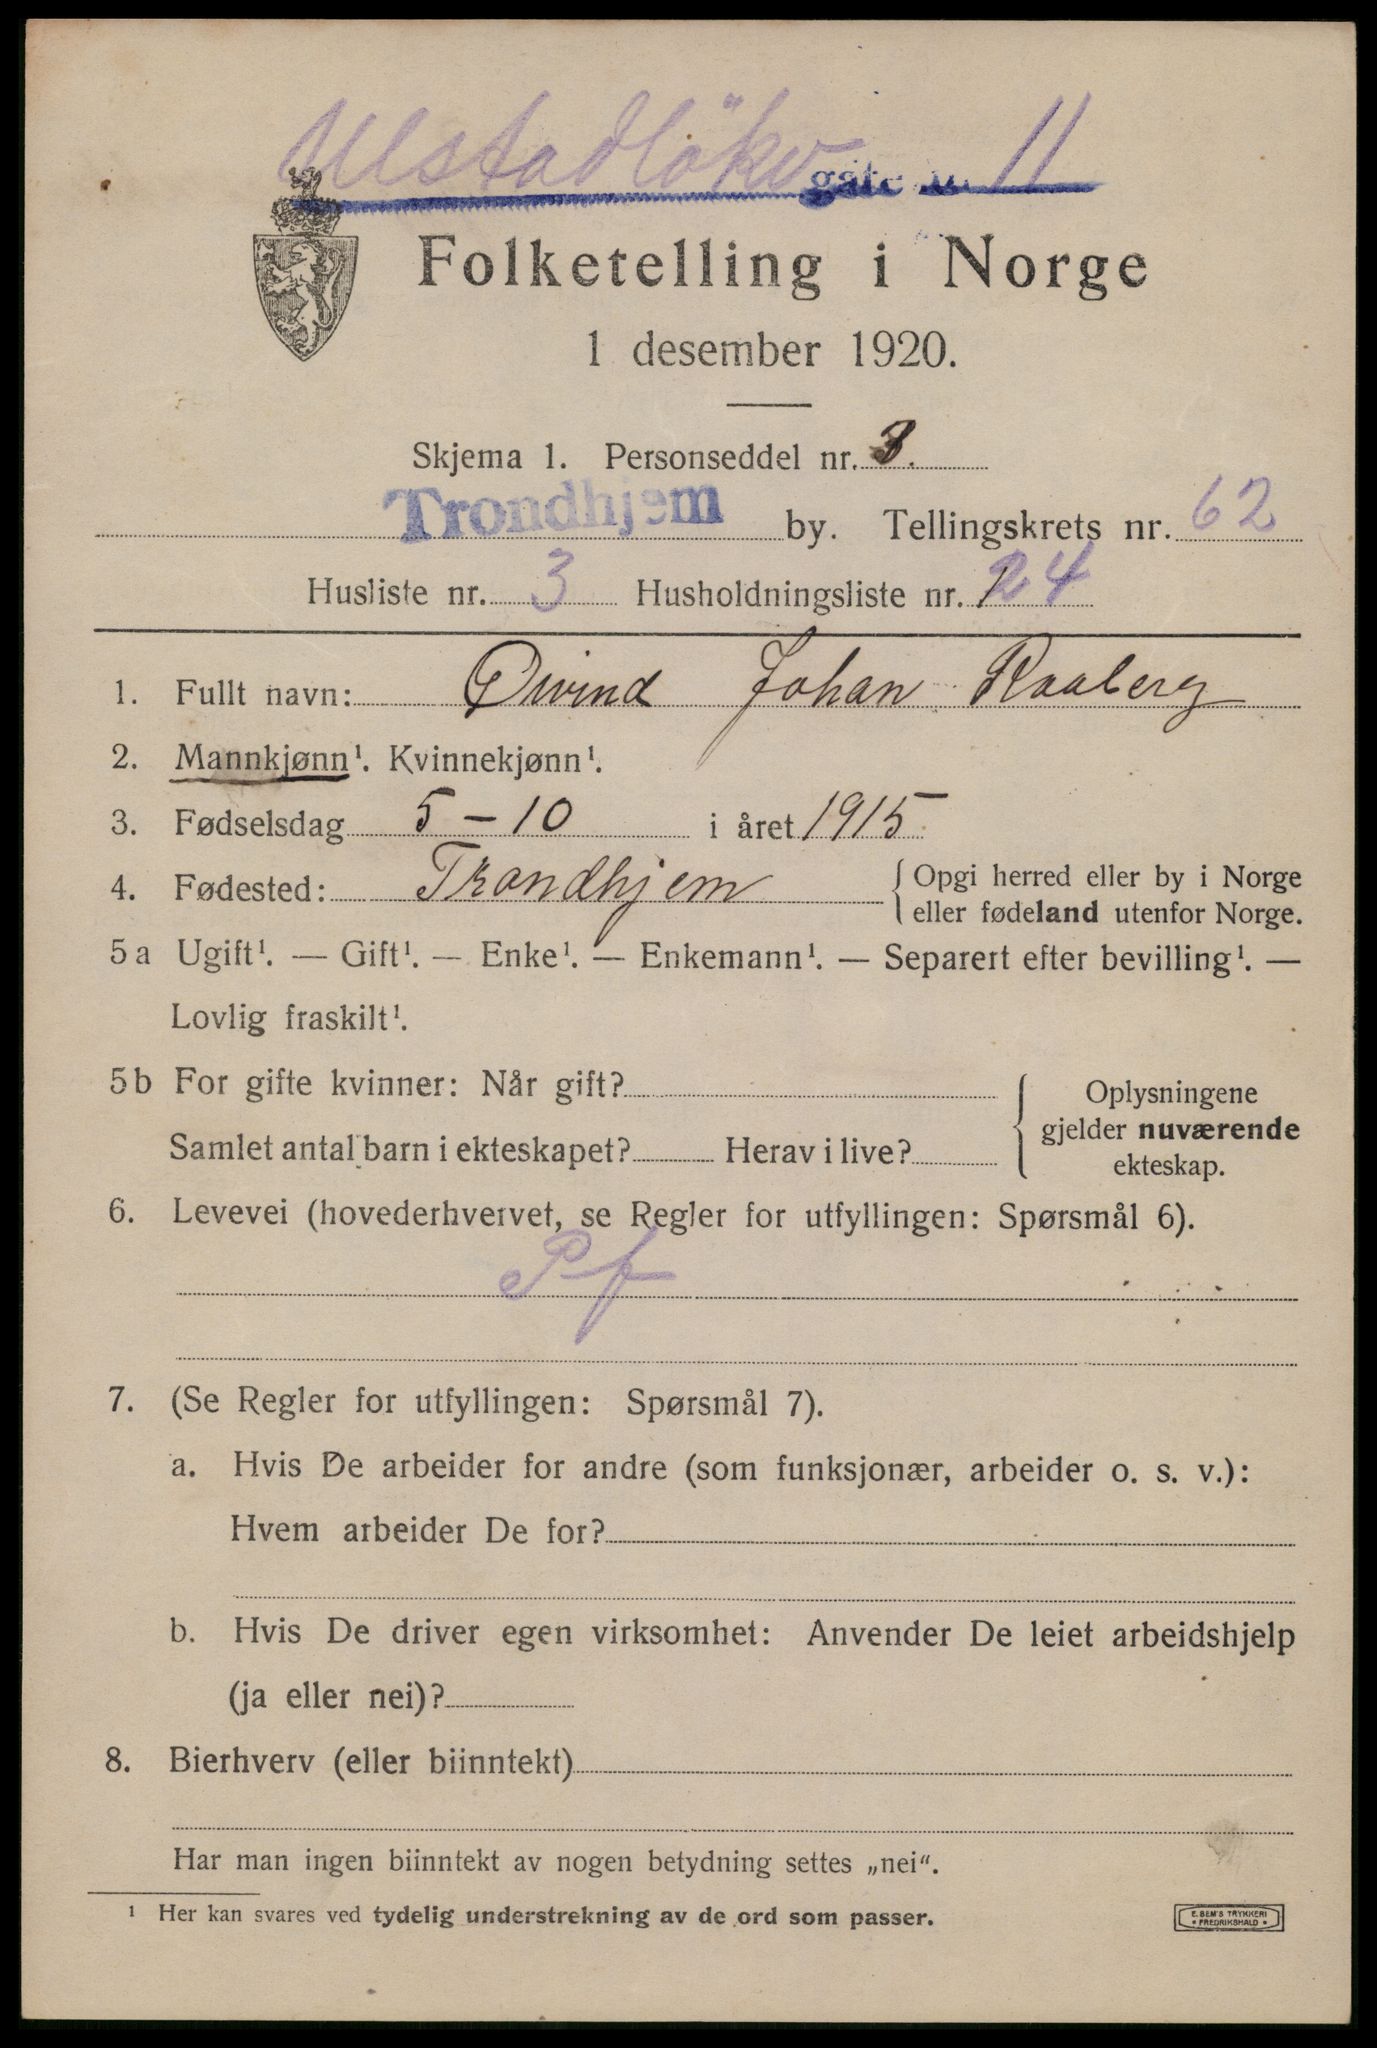 Ulstadlökv gate nr. 11
Folketelling i Norge
1 desember 1920.
Skjema 1. Personseddel nr. 3.
Trondhjem by. Tellingskrets nr. 62
Husliste nr. 3 Husholdningsliste nr. 24
1. Fullt navn: Øivind Johan Raaberg
2. Mannkjønn¹. Kvinnekjønn¹.
3. Fødselsdag 5 – 10 i året 1915
4. Fødested: Trondhjem { Opgi herred eller by i Norge
eller fødeland utenfor Norge.
5a Ugift¹. — Gift¹. — Enke¹. — Enkemann¹. — Separert efter bevilling¹. —
Lovlig fraskilt¹.
5b For gifte kvinner: Når gift?
Samlet antal barn i ekteskapet? Herav i live?
Oplysningene
gjelder nuværende
ekteskap.
6. Levevei (hovederhvervet, se Regler for utfyllingen: Spørsmål 6).
Pf
7. (Se Regler for utfyllingen: Spørsmål 7).
a. Hvis De arbeider for andre (som funksjonær, arbeider o. s. v.):
Hvem arbeider De for?
b. Hvis De driver egen virksomhet: Anvender De leiet arbeidshjelp
(ja eller nei)?
8. Bierhverv (eller biinntekt)
Har man ingen biinntekt av nogen betydning settes „nei“.
¹ Her kan svares ved tydelig understrekning av de ord som passer.
E. SEM'S TRYKKERI
• FREDRIKSHALD •